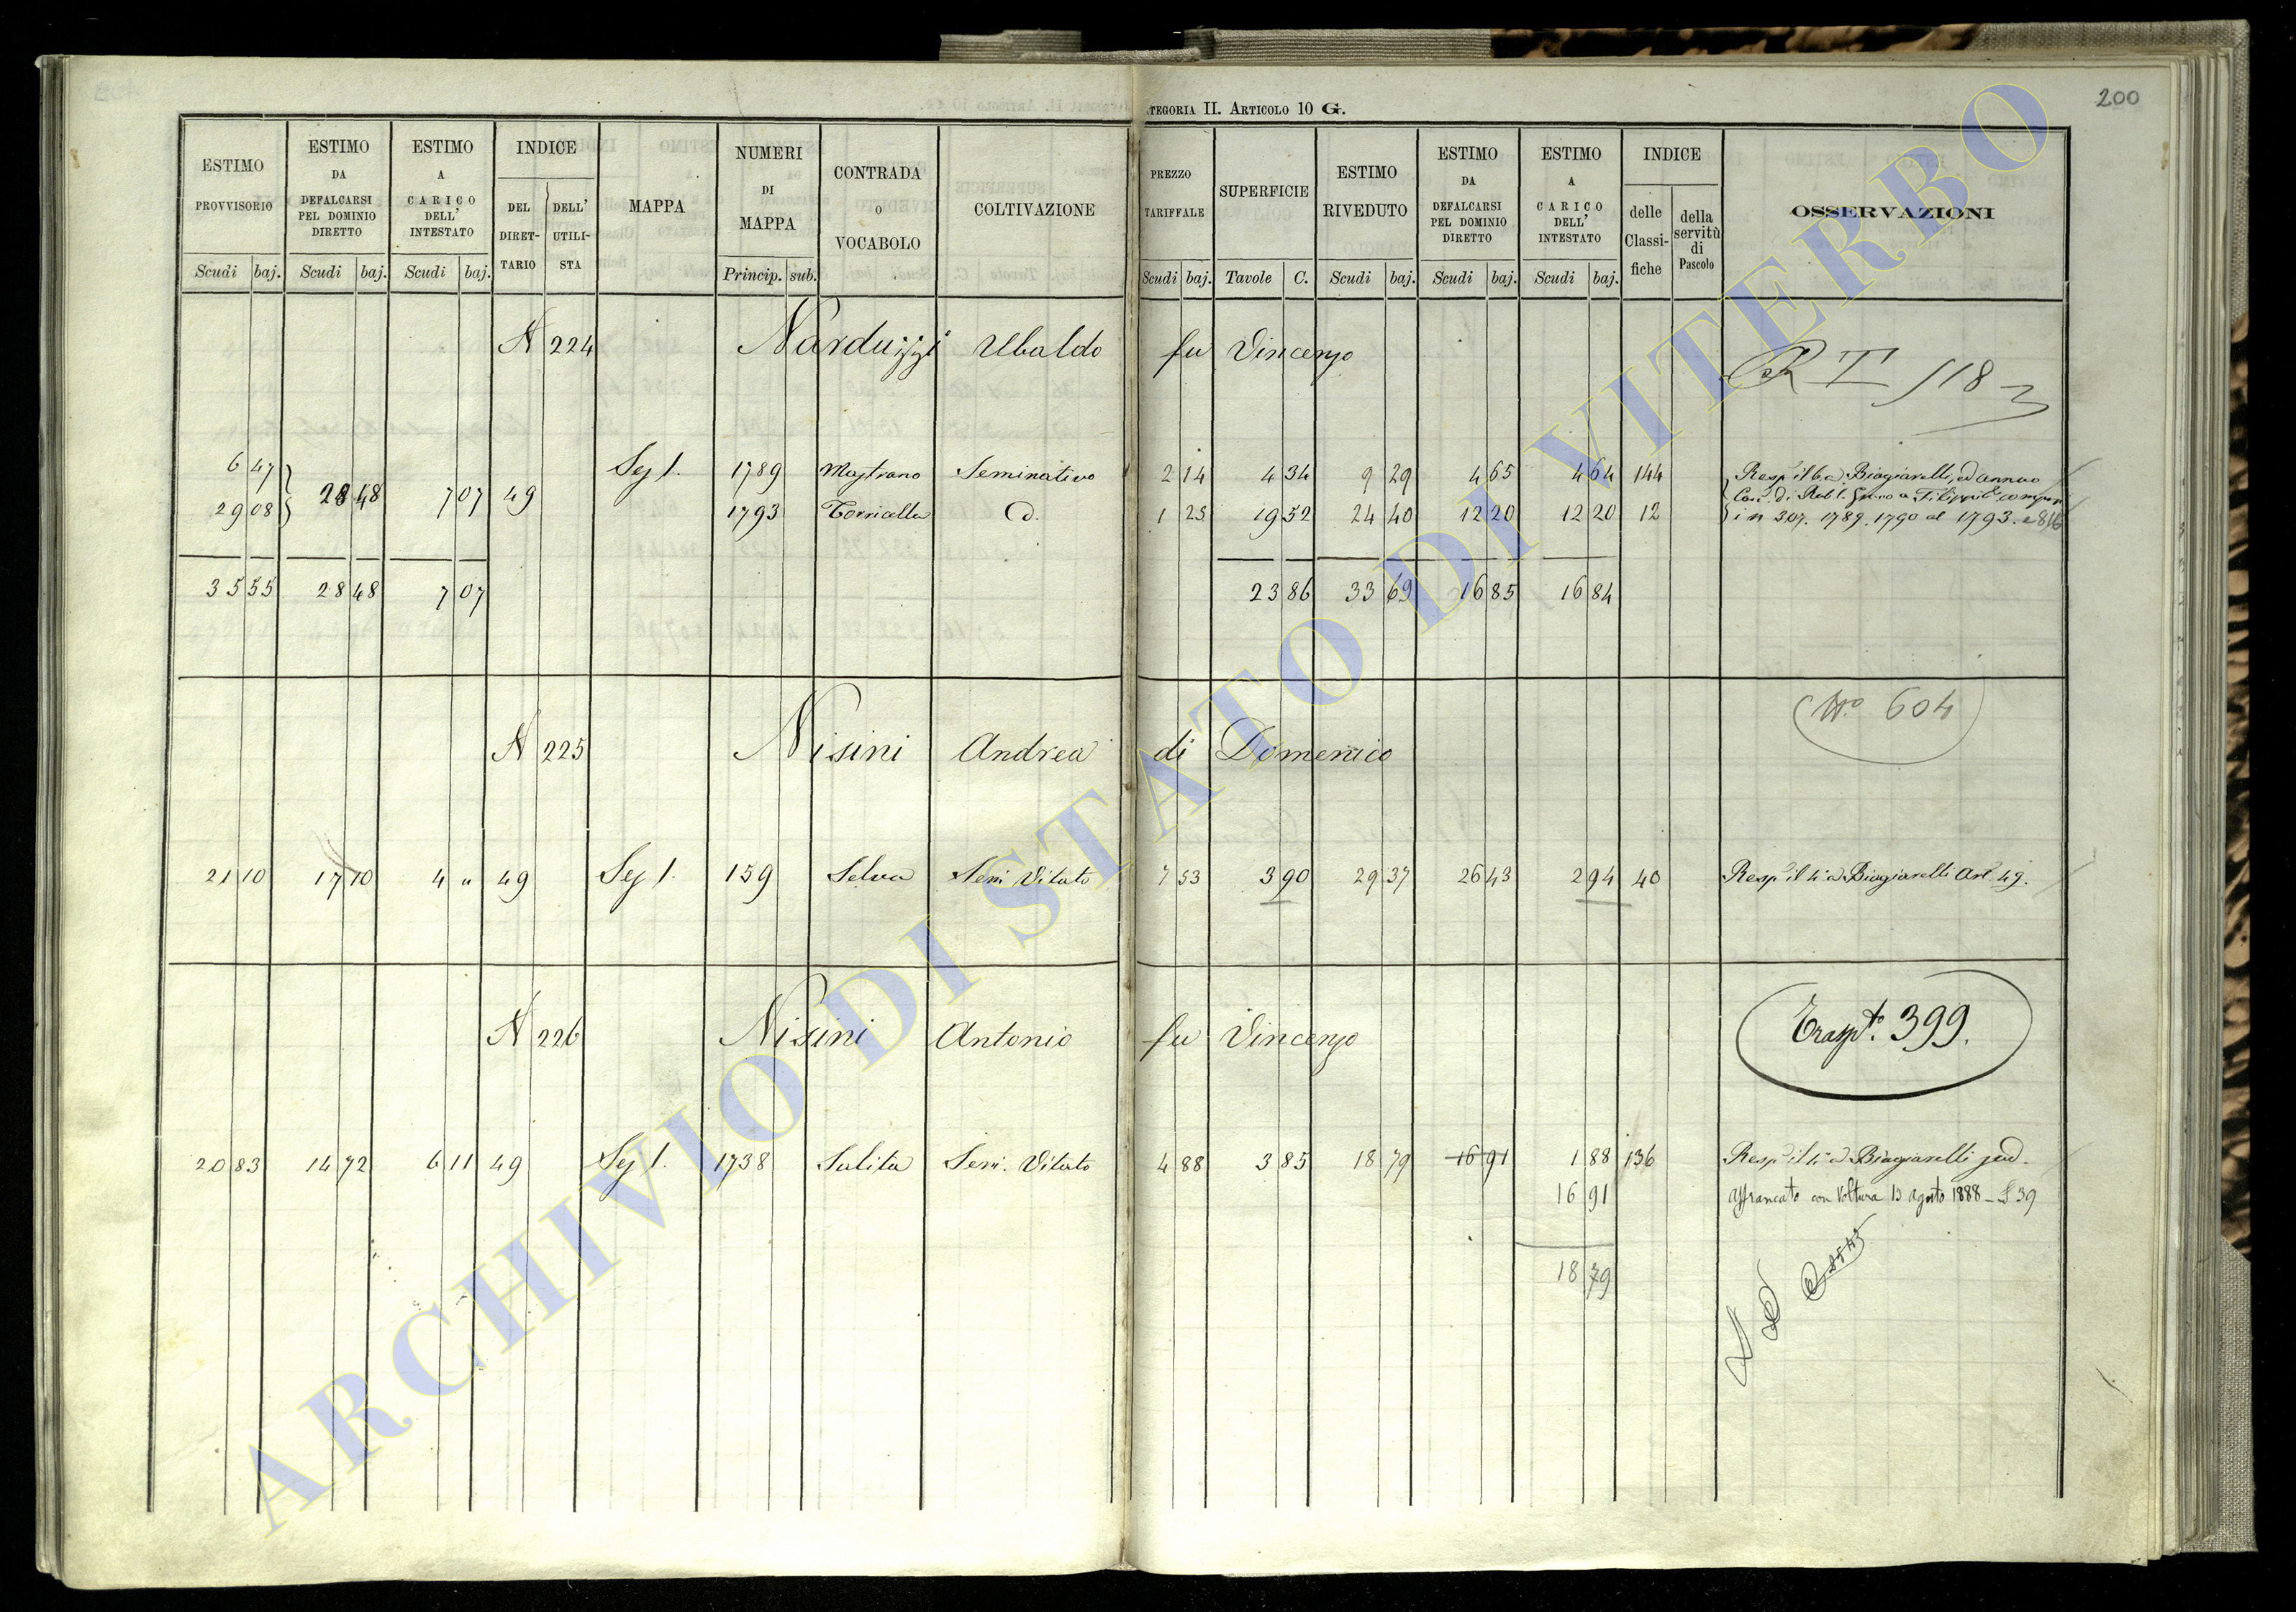 200
TEGORIA II. ARTICOLO 10 G.
ESTIMO PROVVISORIO Scudi baj. ESTIMO DA DEFALCARSI PEL DOMINIO DIRETTO Scudi baj. ESTIMO A CARICO DELL' INTESTATO Scudi baj. INDICE DEL DIRETTARIO DELL' UTILISTA MAPPA NUMERI DI MAPPA Princip. sub. CONTRADA O VOCABOLO COLTIVAZIONE PREZZO TARIFFALE Scudi baj. SUPERFICIE Tavole C. ESTIMO RIVEDUTO Scudi baj. ESTIMO DA DEFALCARSI PEL DOMINIO DIRETTO Scudi baj. ESTIMO A CARICO DELL' INTESTATO Scudi baj. INDICE delle Classifiche della servitù di Pascolo OSSERVAZIONI
N 224 Narduzzi Ubaldo fu Vincenzo
118
6 47 Sez 1. 1789 Seminativo 2 14 4 34 9 29 4 65 4 64 144 Biagiarelli, ed annuo
28 48 7 07 49
29 08 1793 Torricella D. 1 25 19 52 24 40 12 20 12 20 12 in 307. 1789. 1790 al 1793. e 816
35 55 28 48 7 07 23 86 33 69 16 85 16 84
No 604
N 225 Nisini Andrea di Domenico
21 10 17 10 4 " 49 Sez 1. 159 Selva Sem Vitato 7 53 3 90 29 37 26 43 2 94 40 Resp il 4° a Biagiarelli Art 49.
Trasp.to 399.
N 226 Nisini Antonio fu Vincenzo
20 83 14 72 6 11 49 Sez 1. 1738 Salita Sem. Vitato 4 88 3 85 18 79 16 91 1 88 136 Resp il 4° a Biagiarelli sud.
16 91 affrancato con Voltura 13 agosto 1888 - § 39
18 79
ARCHIVIO DI STATO DI VITERBO